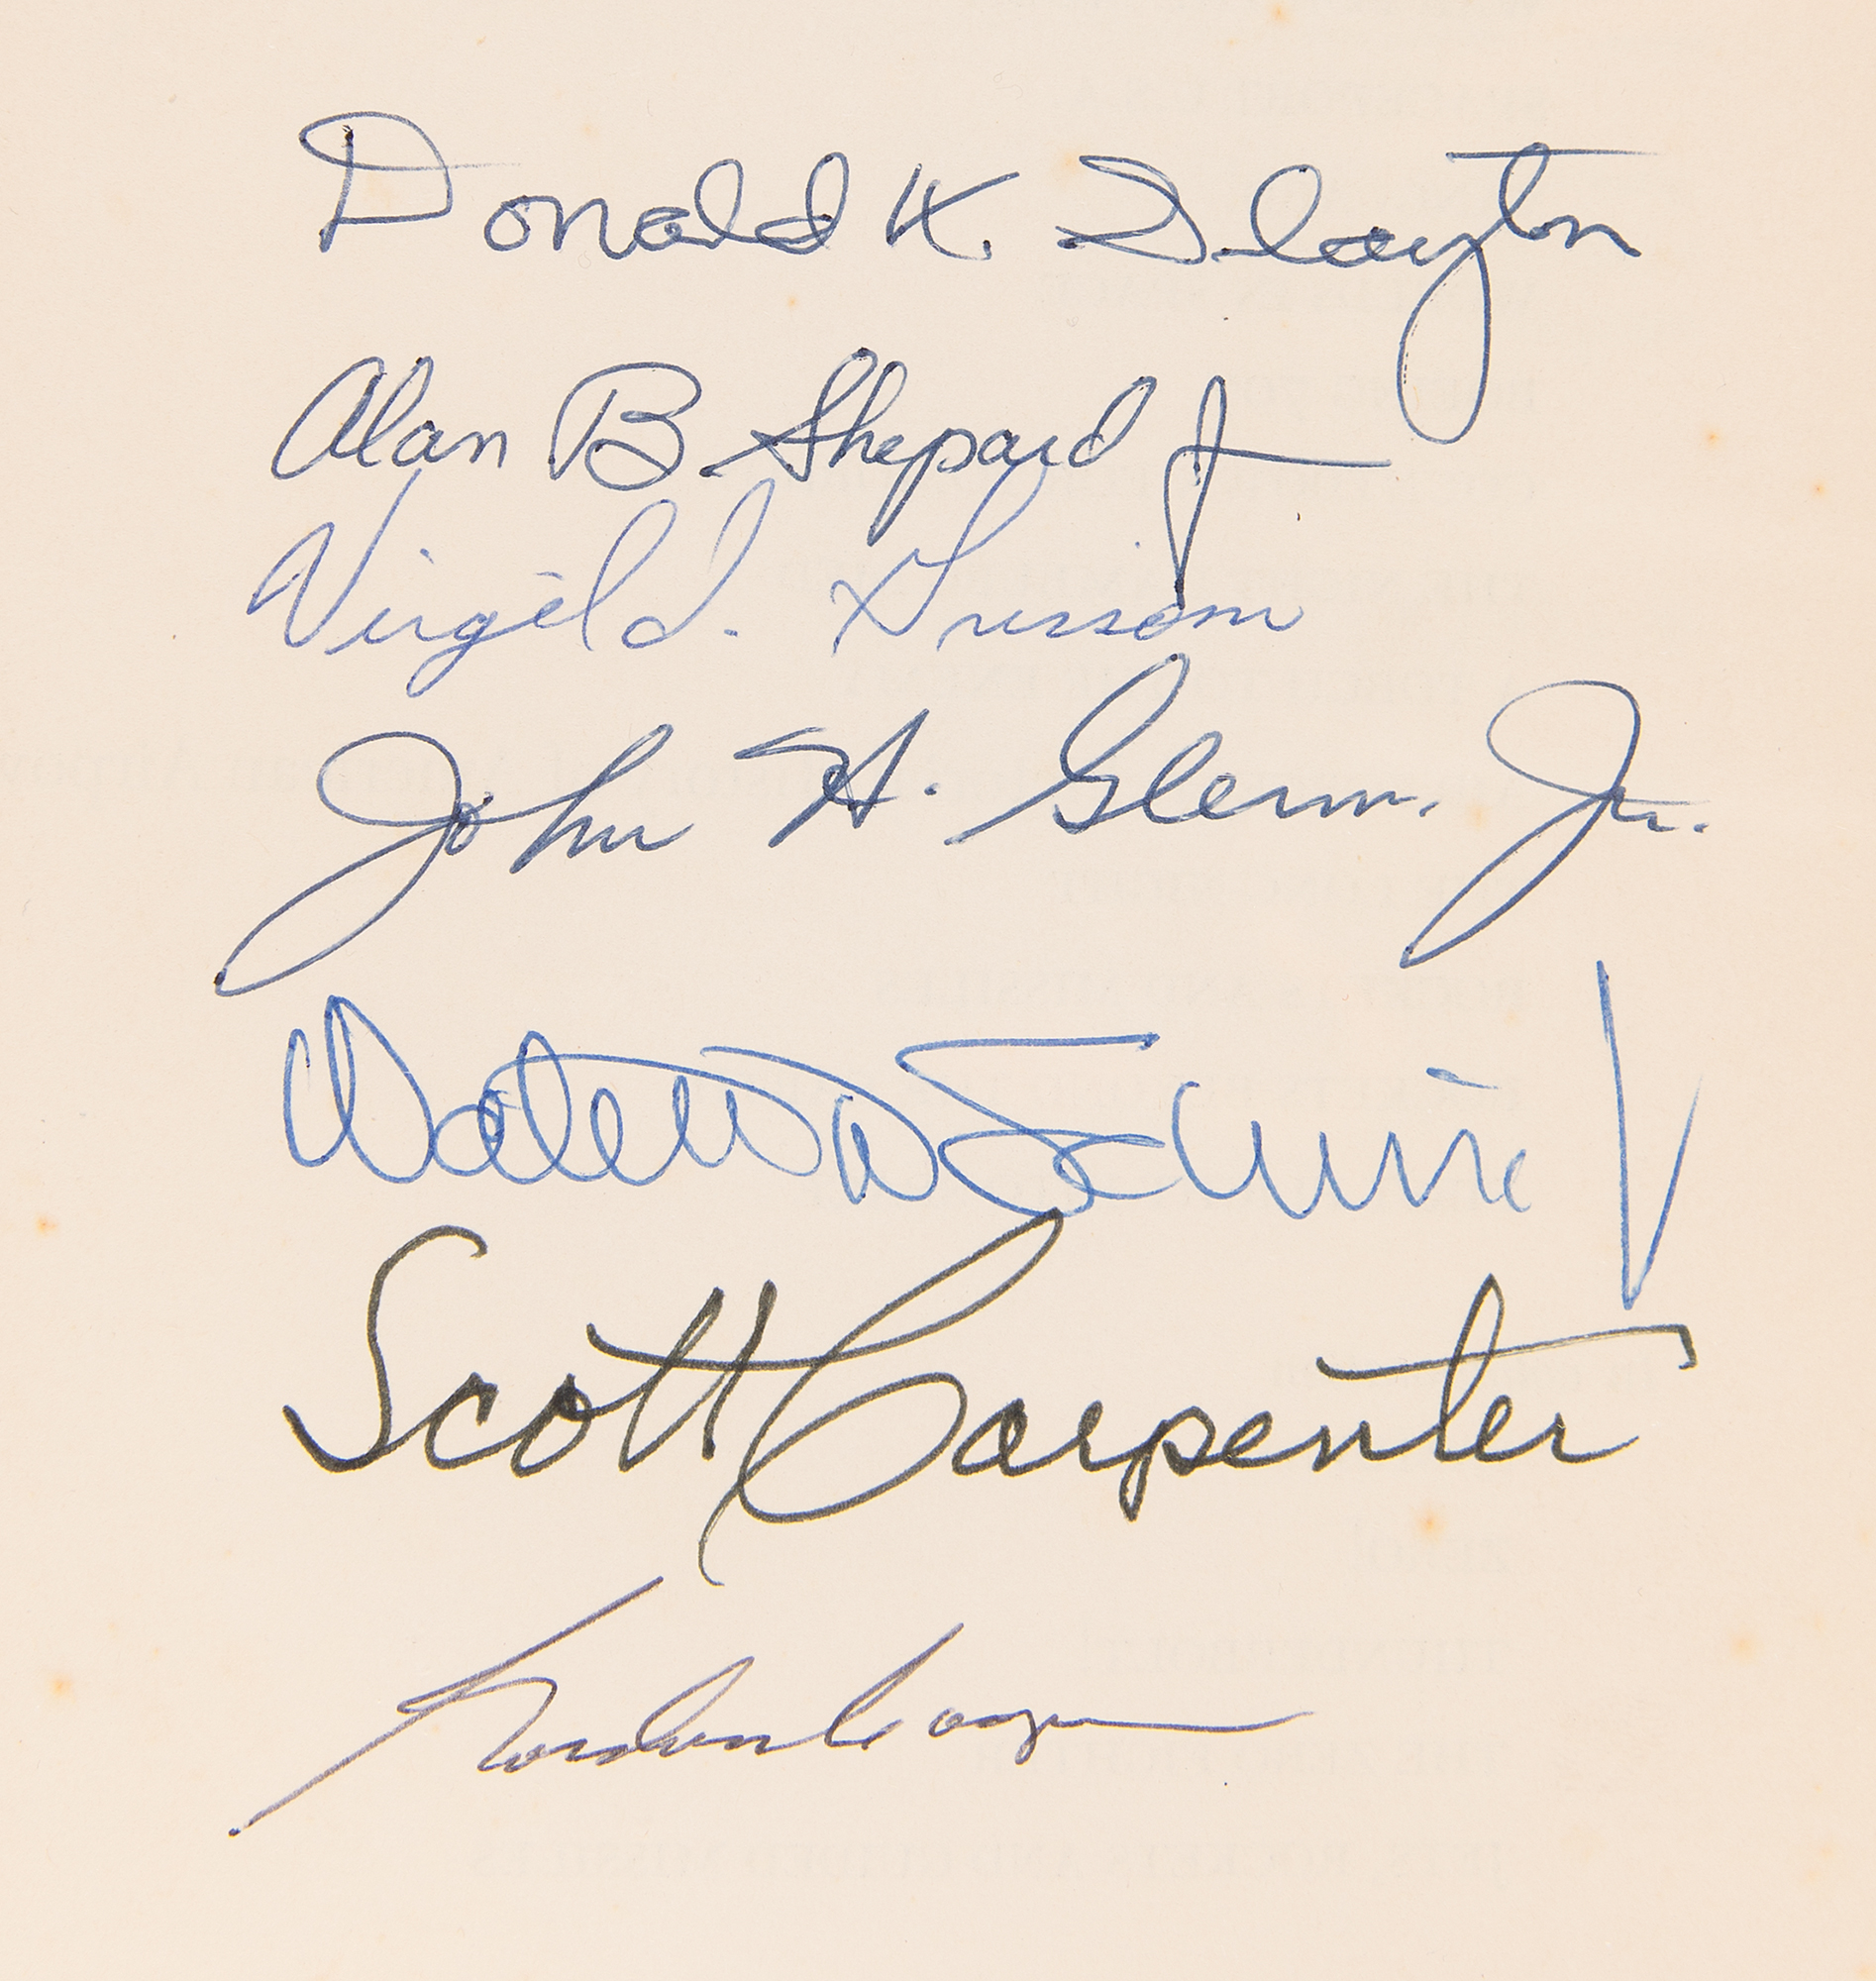 Donald K. Slayton
Alan B. Shepard Jr
Virgil I. Grissom
John H. Glenn, Jr.
Walter M Schirra Jr
Scott Carpenter
Gordon Cooper